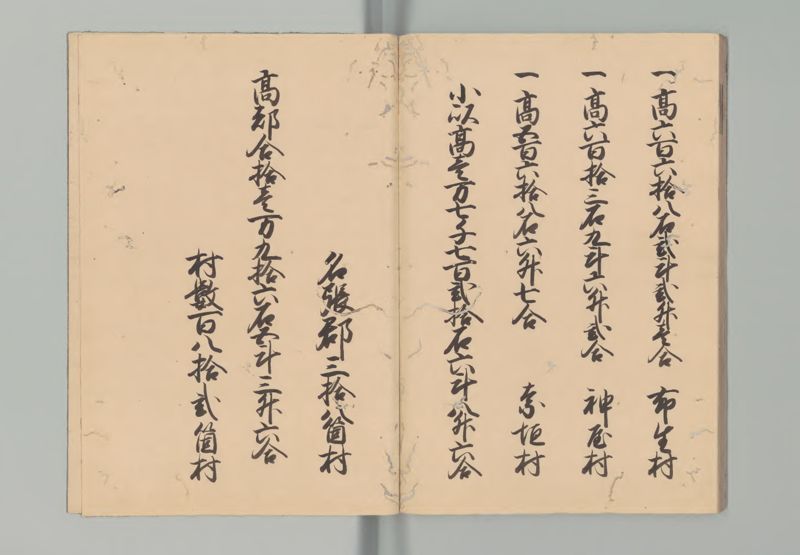 一高六百六拾八石弐斗弐升壱合 布生村
一高六百拾三石九斗六升弐合 神屋村
一高五百六拾八石六升七合 奈垣村
小以高壱万七千七百弐拾石六斗八升六合
名張郡三拾八箇村
高都合拾壱万九拾六石壱斗三升六合
村数百八拾弐箇村